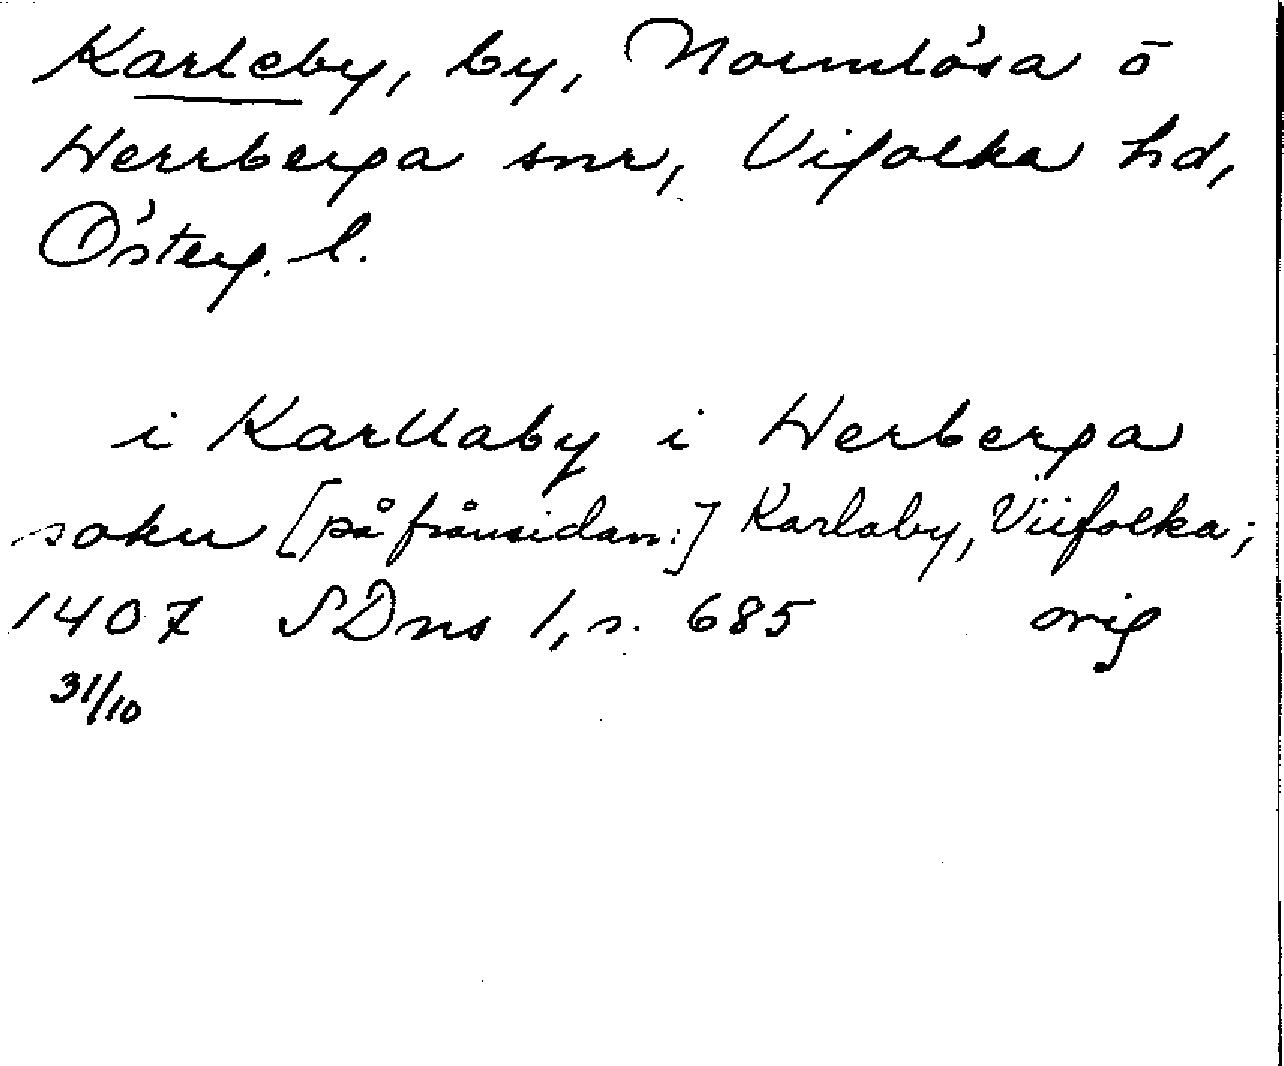 Karleby, by, Normlösa o
Herrberga snr, Vifolka hd,
Österg. l.
i Karllaby i Herberga
sokn [på frånsidan:] Karlaby, Viifolka;
1407 SDns 1, s. 685 orig
31/10